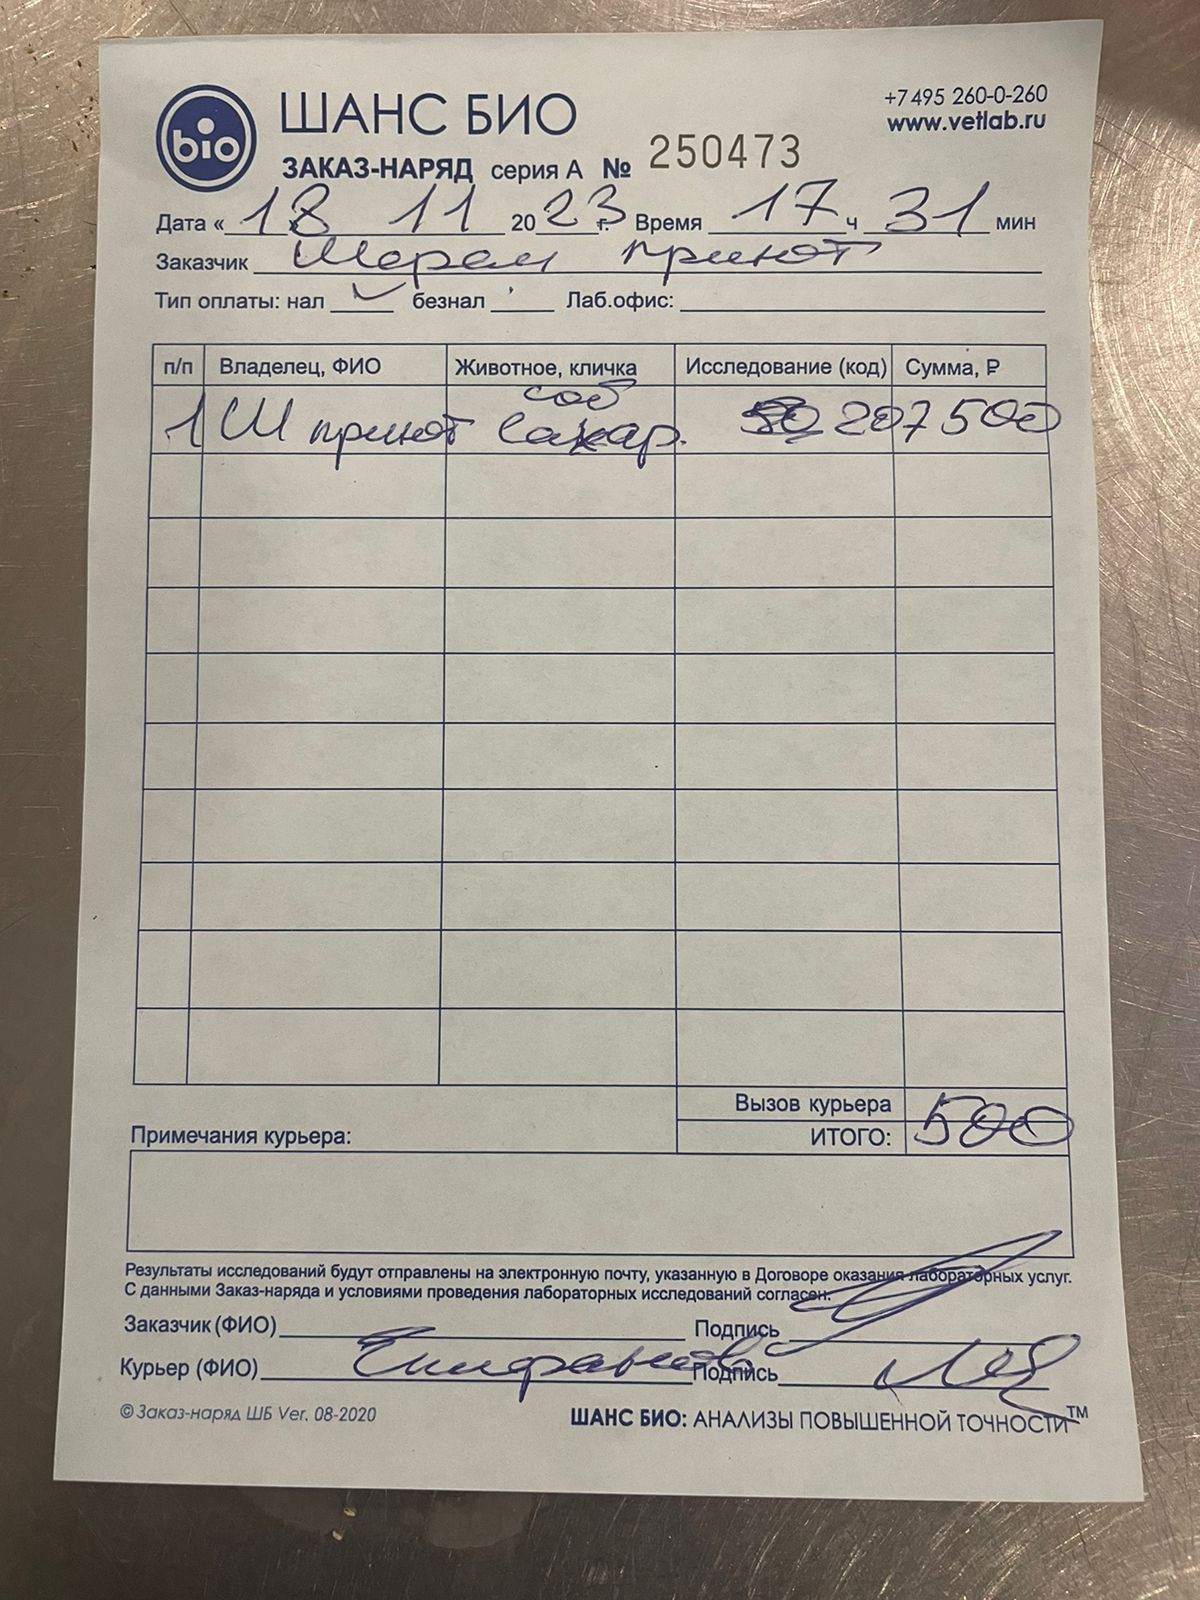 bio
ШАНС БИО
+7 495 260-0-260
www.vetlab.ru
ЗАКАЗ-НАРЯД серия А № 250473
Дата « 18 11 2023 г. Время 17 ч 31 мин
Заказчик приют
Тип оплаты: нал ✓ безнал Лаб.офис:
п/п Владелец, ФИО Животное, кличка Исследование (код) Сумма, ₽
соб
1 Ш приют Сахар. 207 500
Вызов курьера
Примечания курьера:
ИТОГО: 500
Результаты исследований будут отправлены на электронную почту, указанную в Договоре оказания лабораторных услуг.
С данными Заказ-наряда и условиями проведения лабораторных исследований согласен.
Заказчик (ФИО) Подпись
Курьер (ФИО) Подпись
© Заказ-наряд ШБ Ver. 08-2020
ШАНС БИО: АНАЛИЗЫ ПОВЫШЕННОЙ ТОЧНОСТИ™